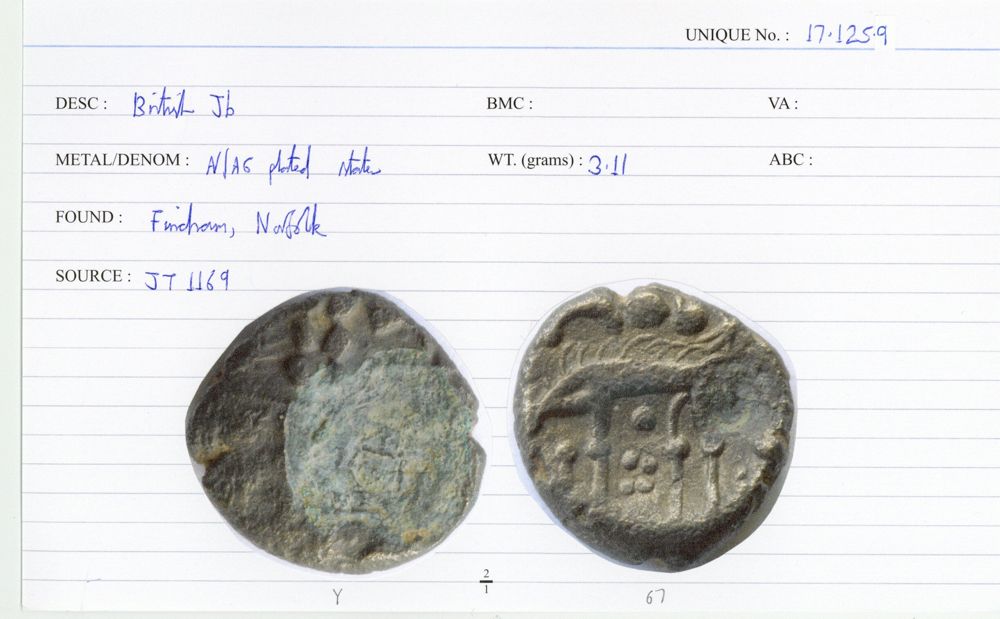 UNIQUE No. : 17.1259
DESC : British Jb BMC : VA :
METAL/DENOM : N/AG plated stater WT. (grams) : 3.11 ABC :
FOUND : Fincham, Norfolk
SOURCE : JT 1169
2
1
Y 67